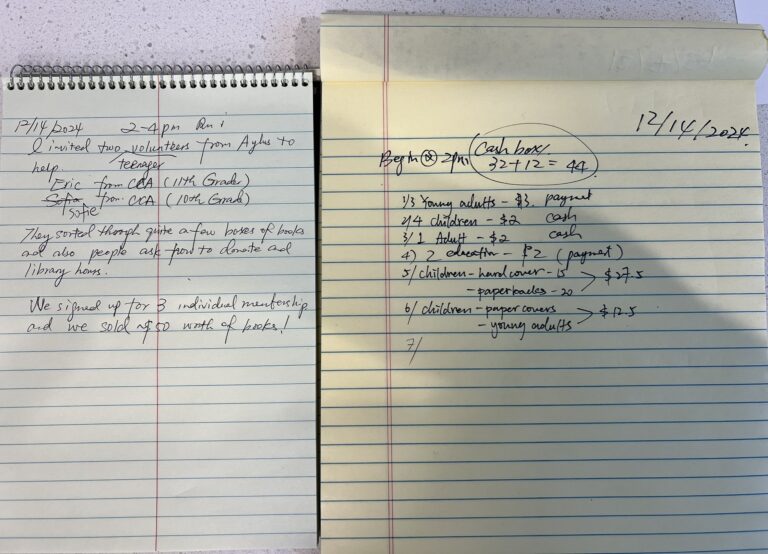 12/14/2024 2-4pm
I invited two volunteers from Aylus to
teenager
help.
Eric from CCA (11th Grade)
Sofia from CCA (10th Grade)
Sofie
They sorted through quite a few boxes of books
and also people ask how to donate and
library hours.
We signed up for 3 individual membership
and we sold ~$50 worth of books!
12/14/2024
Begin @ 2pm
Cash box
32+12 = 44
1/ 3 Young adults - $3. paymet
2/ 4 children - $2 cash
3/ 1 Adult - $2 cash
4) 2 education - $2 (paymet)
5/ children - hard cover - 15 > $27.5
- paperbacks - 20
6/ children - paper covers > $12.5
- young adults
7/